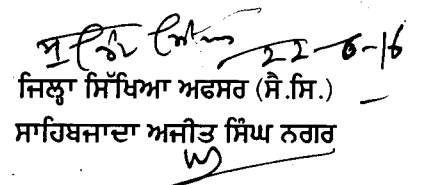 22-6-16
ਜਿਲ੍ਹਾ ਸਿੱਖਿਆ ਅਫਸਰ (ਸੈ.ਸਿ.)
ਸਾਹਿਬਜਾਦਾ ਅਜੀਤ ਸਿੰਘ ਨਗਰ